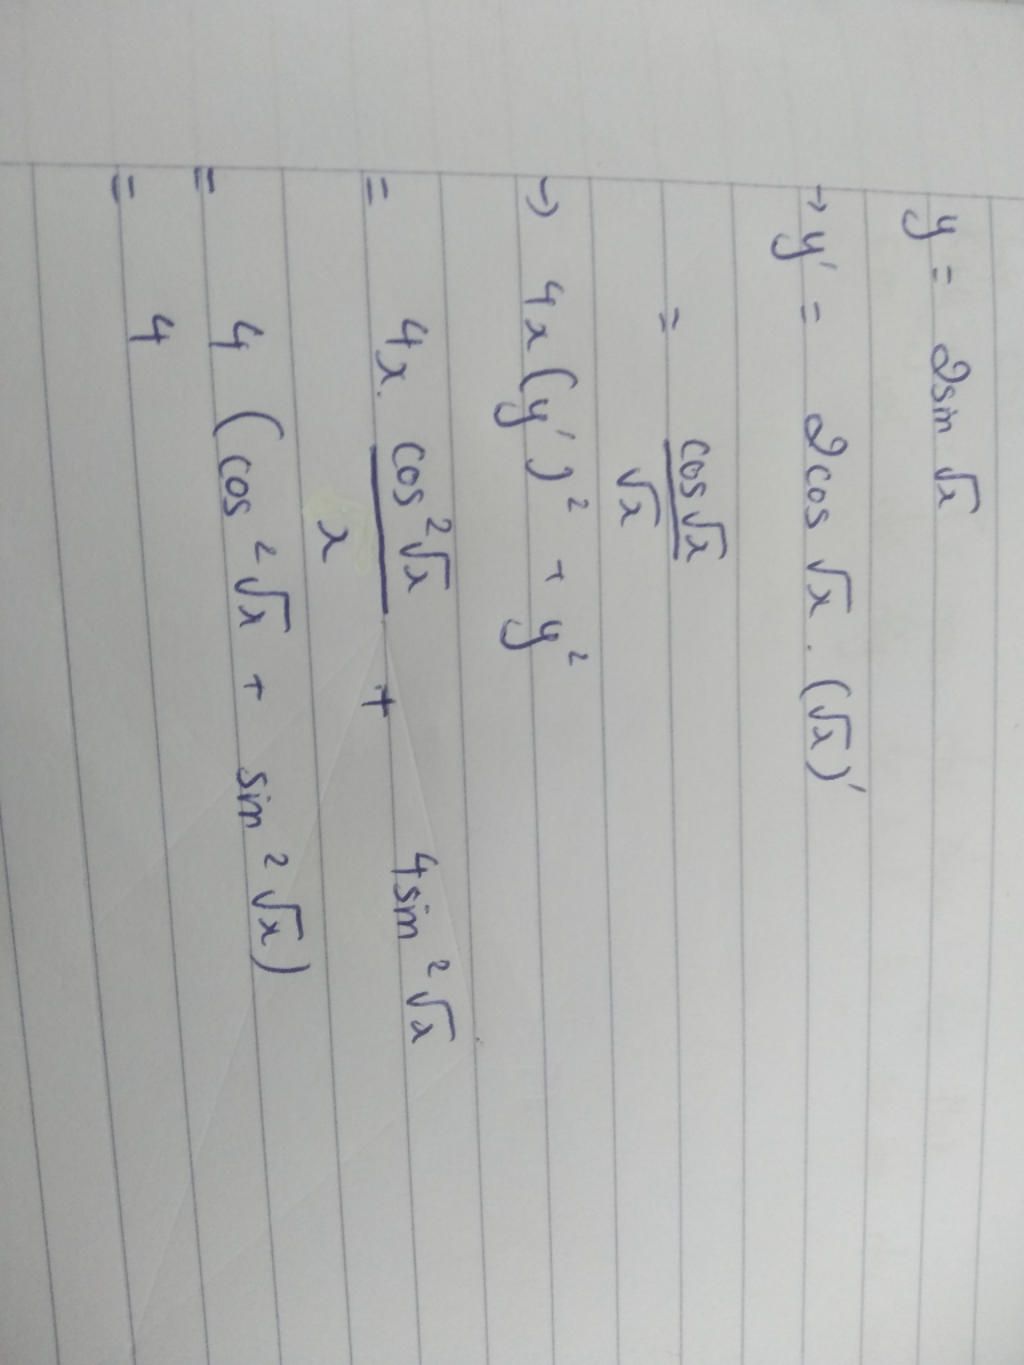 y = 2sin √x
→ y' = 2cos √x . (√x)'
= cos√x / √x
→ 4x(y')² + y²
= 4x. cos²√x / x + 4sin²√x
= 4 (cos²√x + sin²√x)
= 4